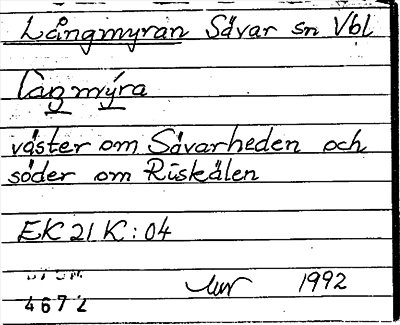 Långmyran Sävar sn Vbl
låŋmýra
väster om Sävarheden och
söder om Riskälen
EK 21 K:04
1992
4672